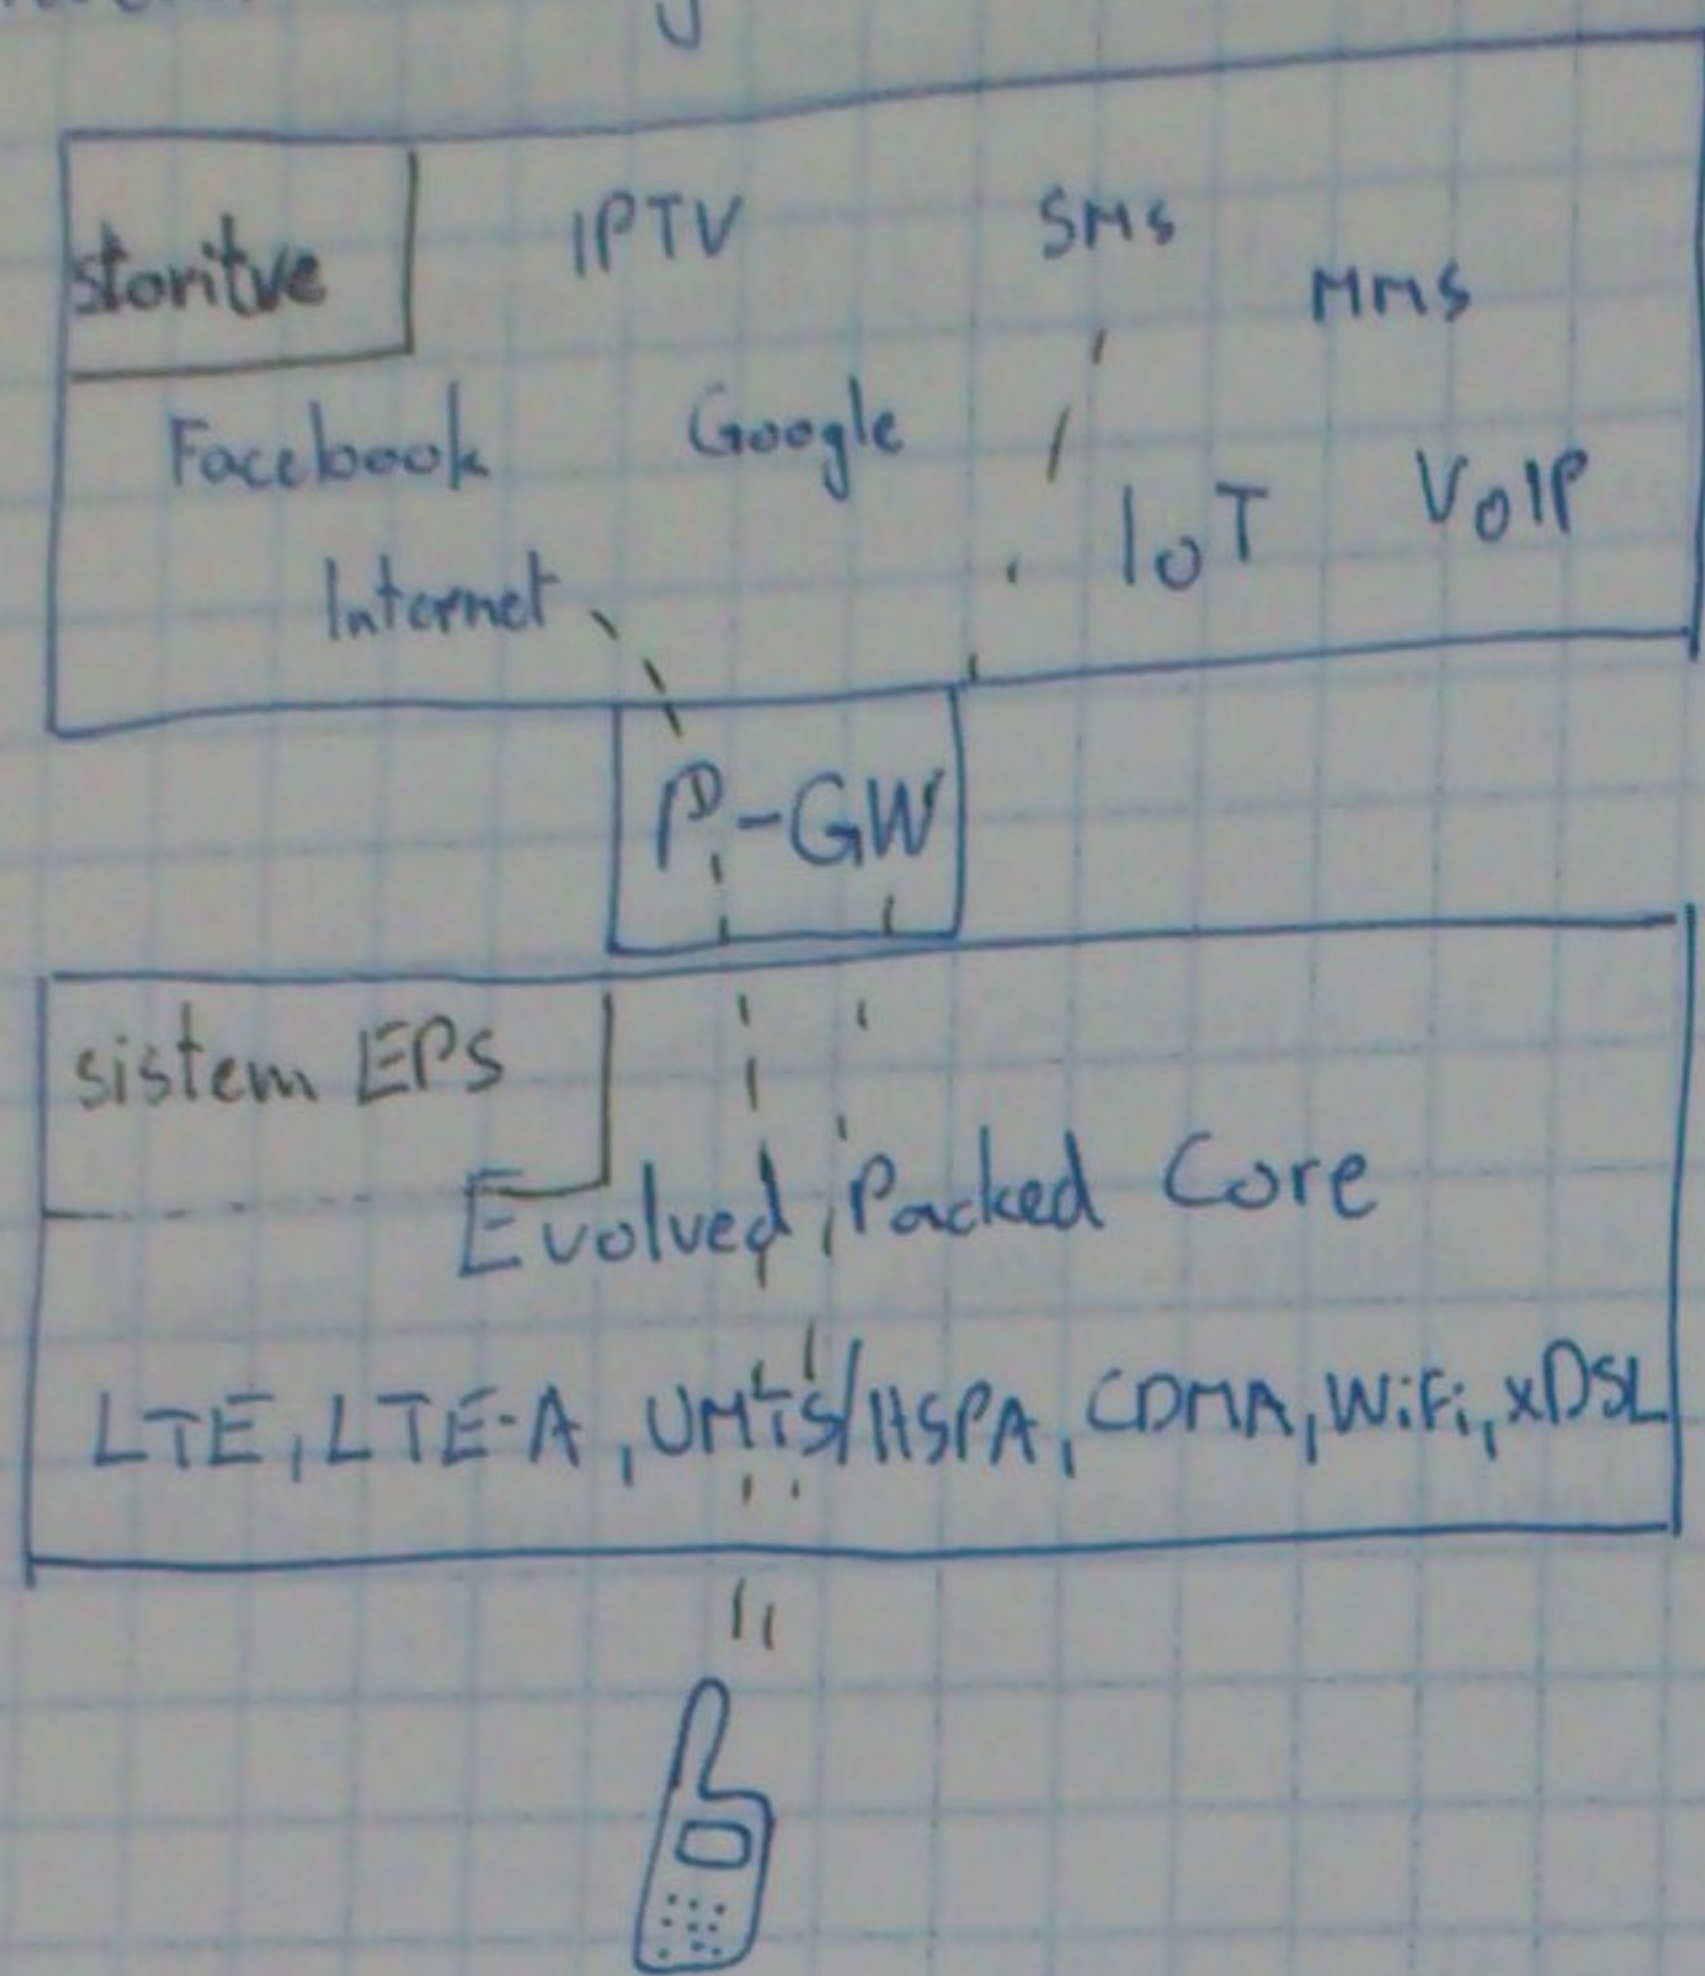 storitve
IPTV
SMS
MMS
Facebook
Google
IoT
VoIP
Internet
P-GW
sistem EPS
Evolved Packed Core
LTE, LTE-A, UMTS/HSPA, CDMA, WiFi, xDSL